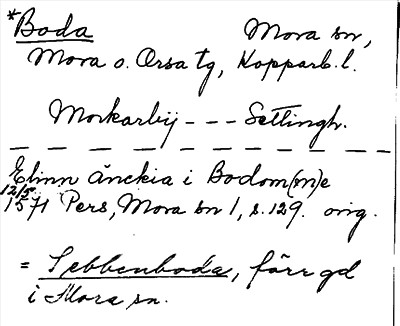 *Boda Mora sn,
Mora o. Orsa tg, Kopparb. l.
Morkarby - - - Settingh.
Elinn änckia i Bodom(m)e
12/5
1571 Pers, Mora sn 1, s. 129. orig.
= Sebbenboda, förr gd
i Mora sn.